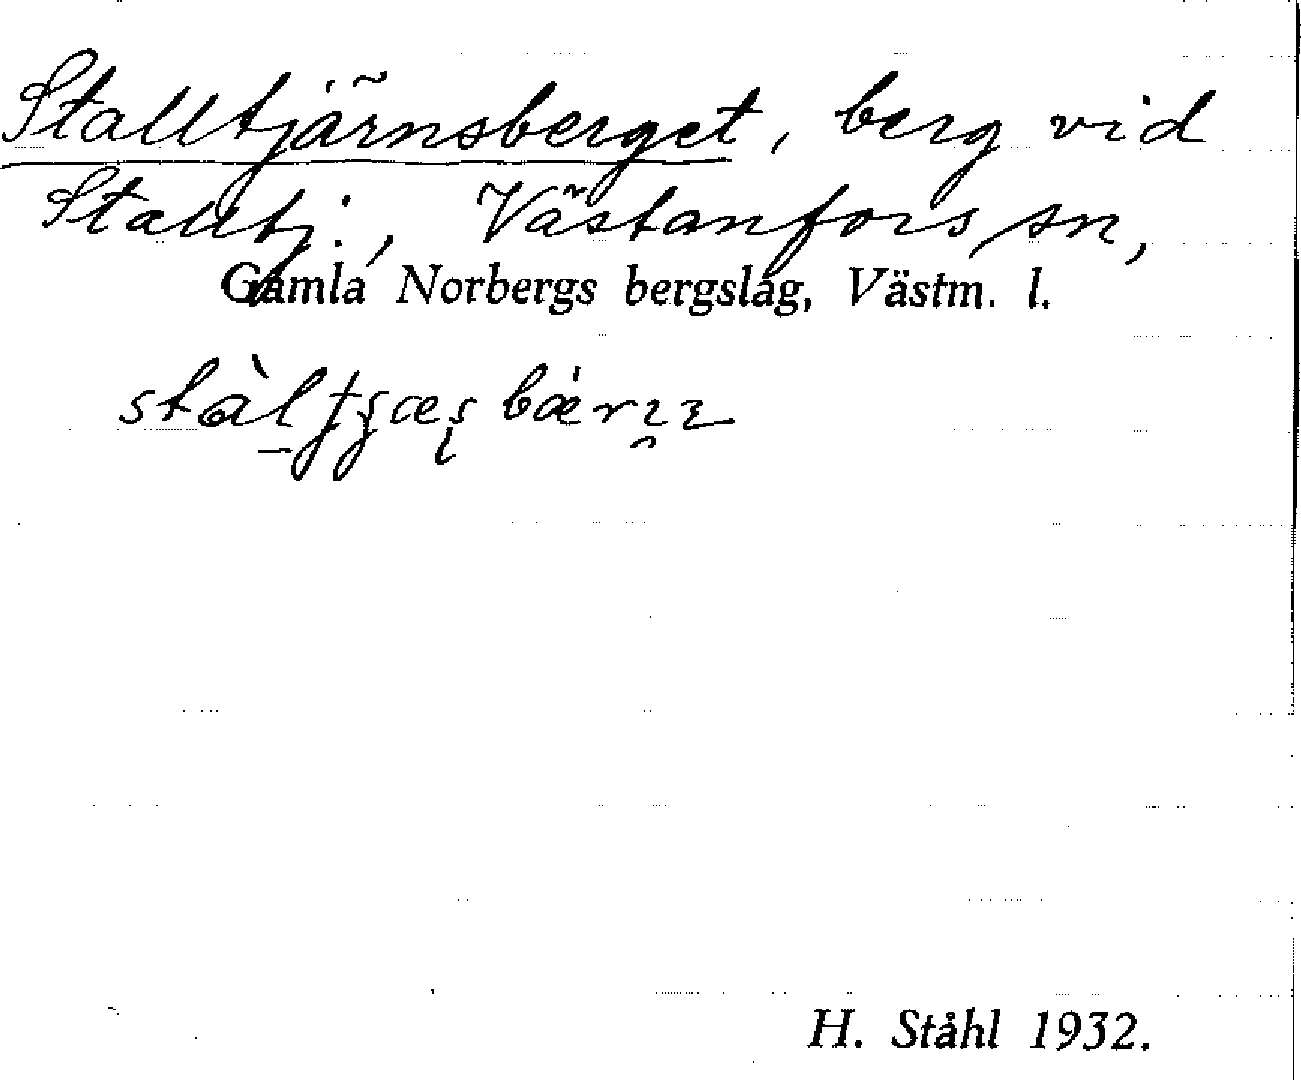 Stalltjärnsberget, berg vid
Stalltj., Västanfors sn,
Gamla Norbergs bergslag, Västm. l.
H. Ståhl 1932.